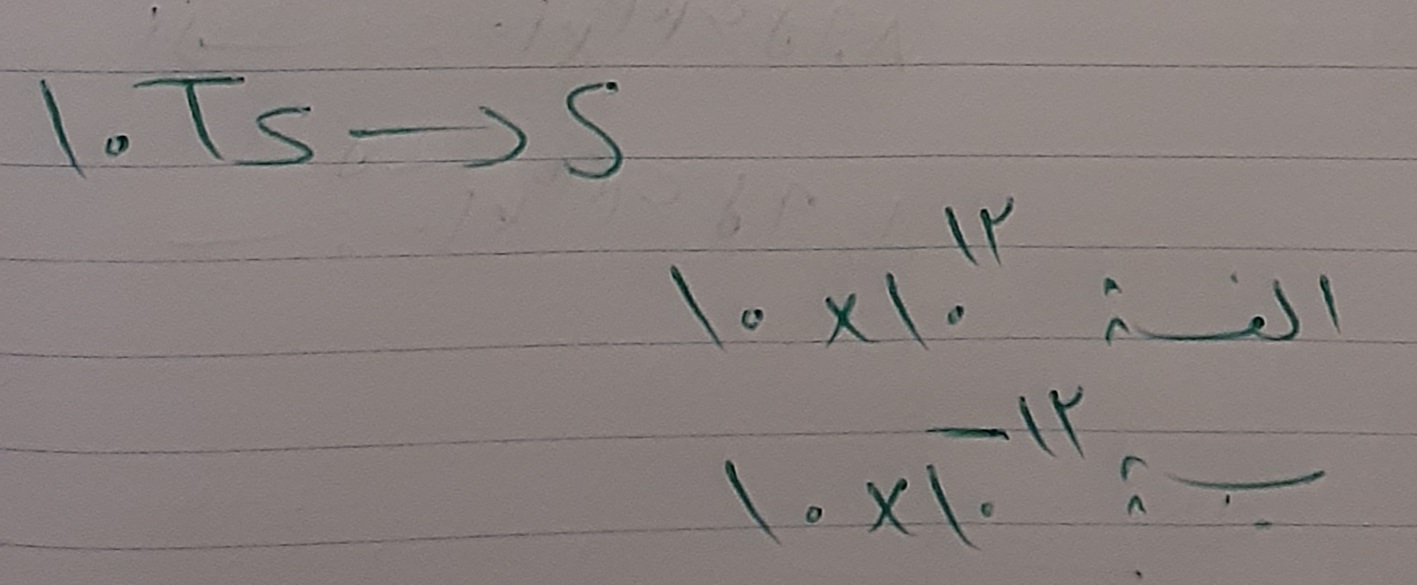 ١٠ Ts → S
الفئة ١٠ × ١٠^١٢
١٠ × ١٠^-١٢